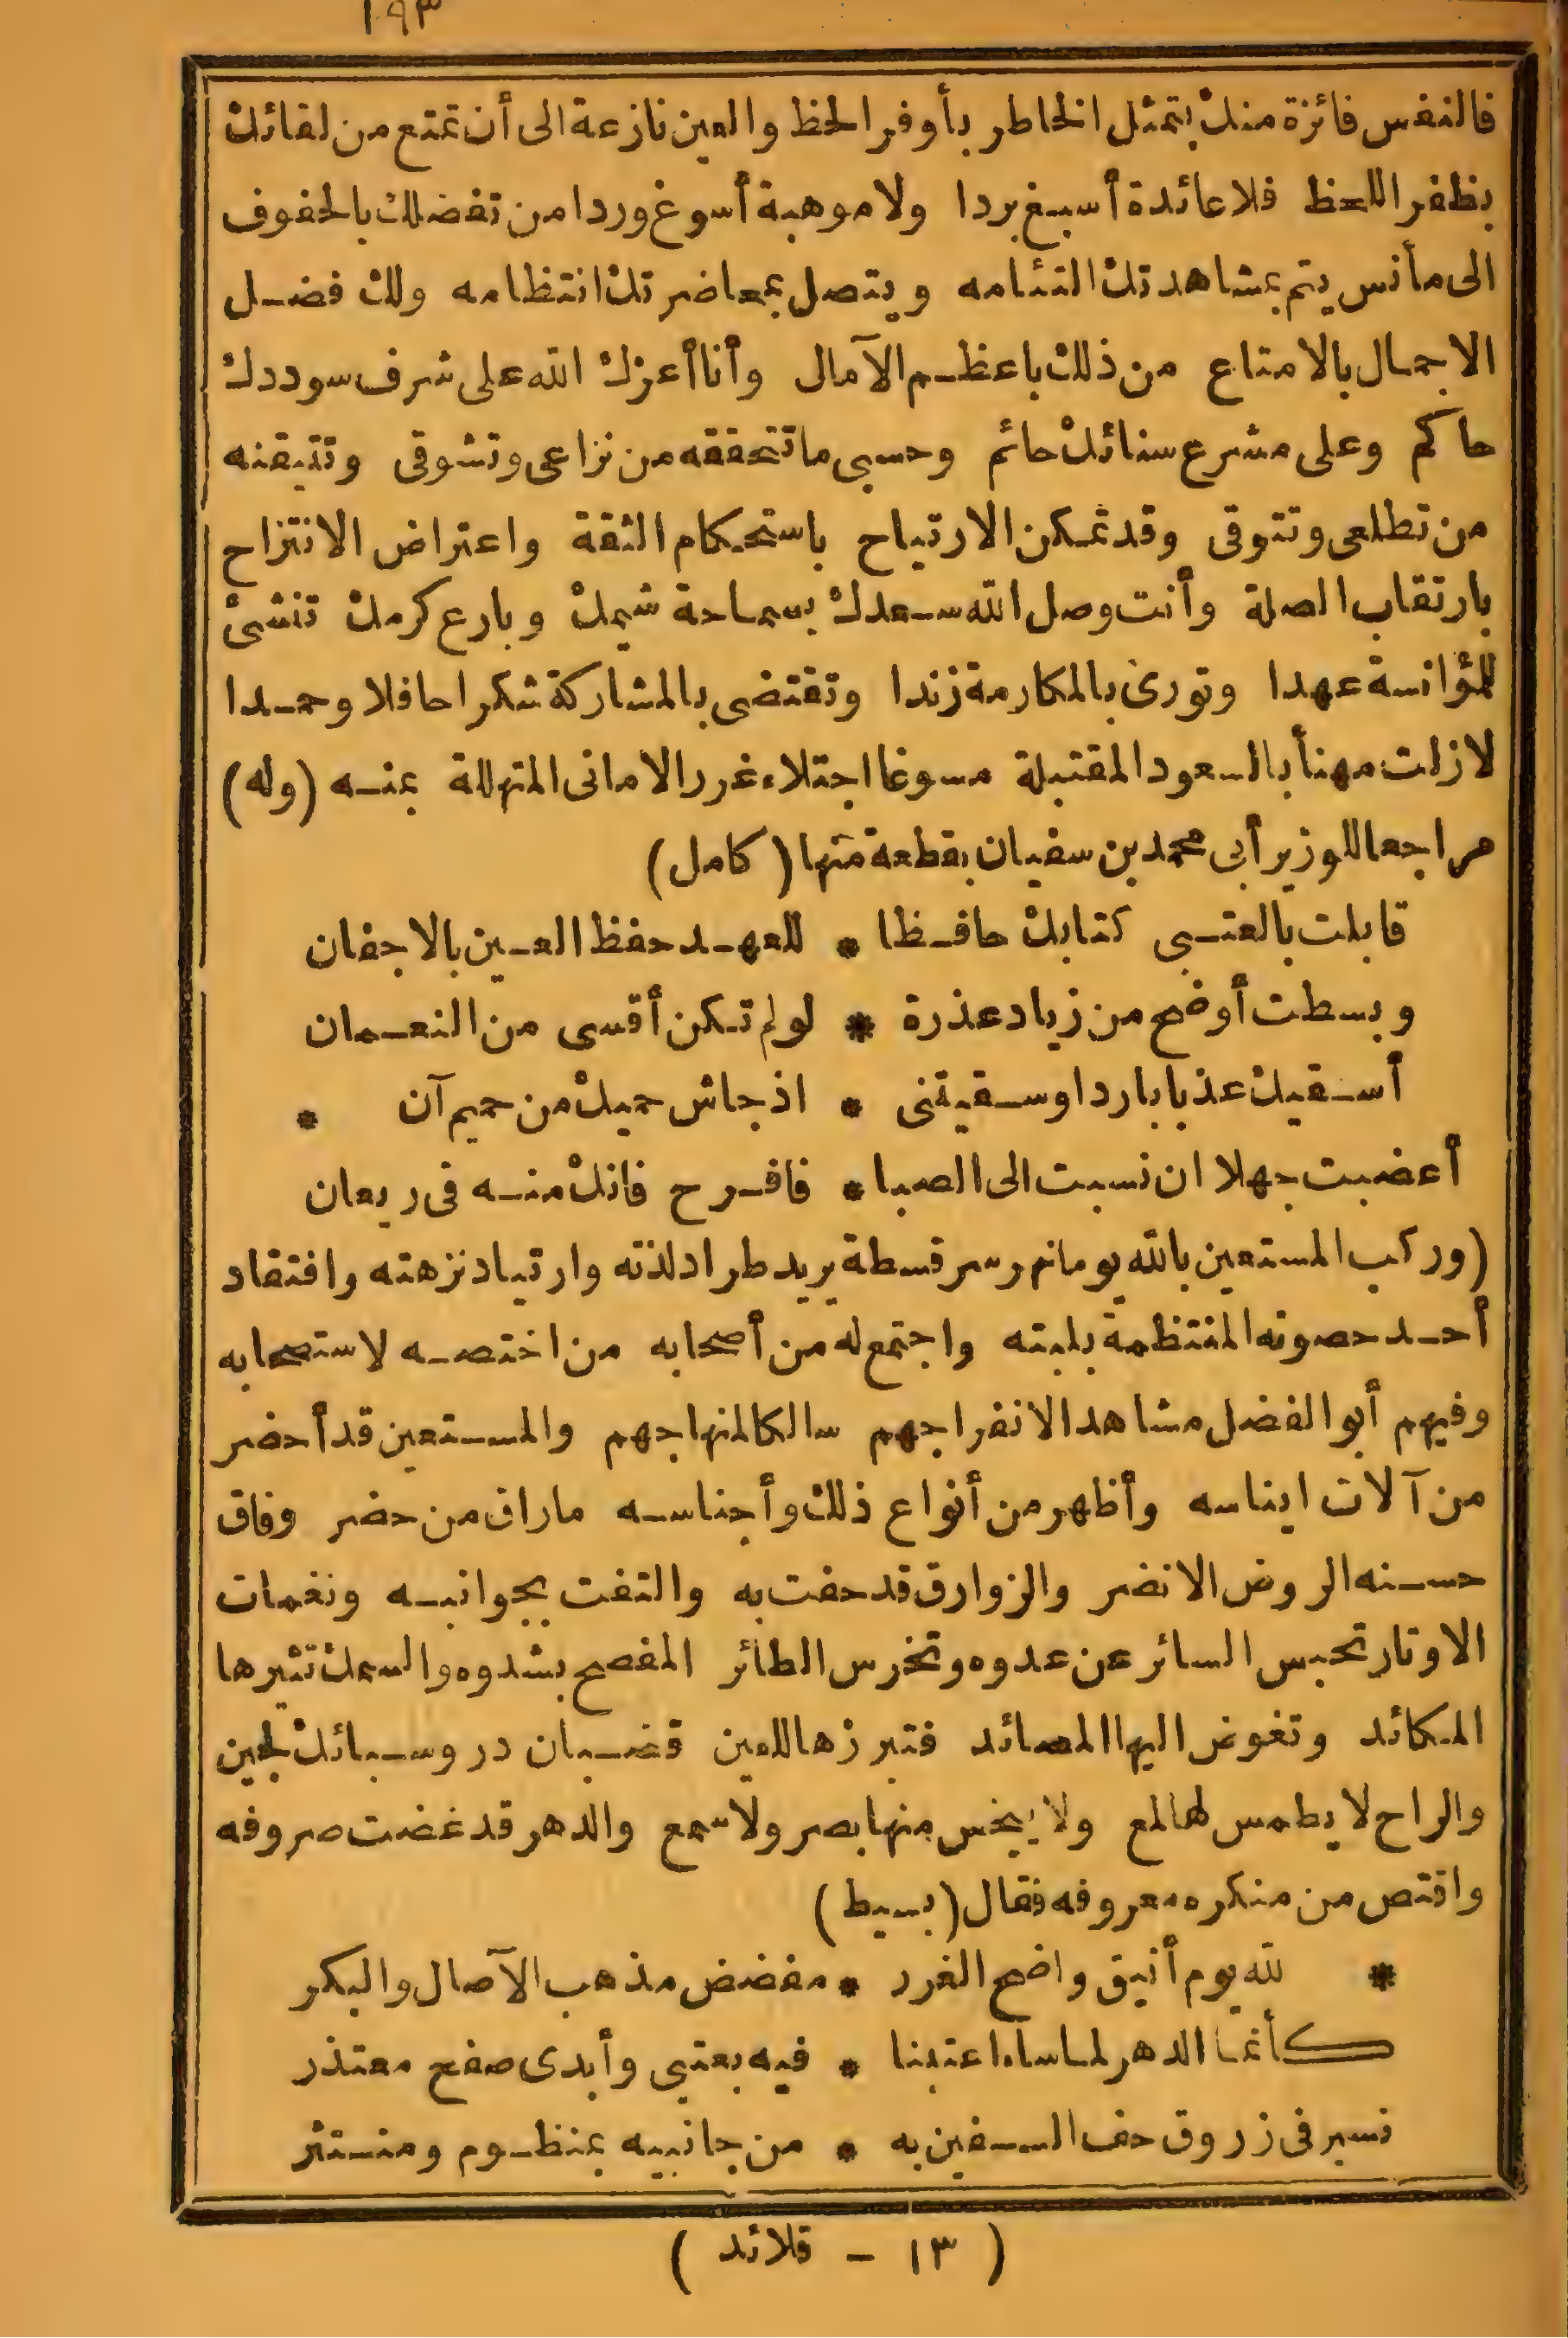 ١٩٣
فالنفس فائزة منك بتمثل الخاطر بأوفر الحظ والعين نازعة الى أن تمتع من لقائك
بظفر اللحظ فلا عائدة أسبغ بردا ولا موهبة أسوغ وردا من تفضلك بالخفوف
الى مأنس يتم بمشاهدتك التئامه ويتصل بمحاضرتك انتظامه ولك فضل
الاجمال بالامتاع من ذلك باعظم الآمال وأنا أعزك الله على شرف سوددك
حاكم وعلى مشرع سنائك حائم وحسبى ما تتحققه من نزاعى وتشوقى وتتيقنه
من تطلعى وتتوقى وقد تمكن الارتياح باستحكام الثقة واعتراض الانتزاح
بارتقاب الصلة وأنت وصل الله سعدك بسماحة شيمك وبارع كرمك تنشئ
للمؤانسة عهدا وتورى بالمكارمة زندا وتقتضى بالمشاركة شكرا حافلا وحمدا
لا زلت مهنأ بالسعود المقتبلة مسوغا اجتلاء غرر الامانى المتهللة بمنه (وله)
مراجعا للوزير أبى محمد بن سفيان بقطعة منها (كامل)
قابلت بالعتبى كتابك حافظا * للعهد حفظ العين بالاجفان
وبسطت أوضح من زياد عذرة * لو لم تكن أقسى من النعمان
أسقيك عذبا باردا وسقيتنى * اذ جاش حميك من حميم آن *
أعضبت جهلا ان نسبت الى الصبا * فافرح فانك منه فى ريعان
(وركب المستعين بالله يوما نهر سرقسطة يريد طراد لذته وارتياد نزهته وافتقاد
أحد حصونه المنتظمة بلبته واجتمع له من أصحابه من اختصه لاستصحابه
وفيهم أبو الفضل مشاهدا لانفراجهم سالكا لمنهاجهم والمستعين قد أحضر
من آلات ايناسه وأظهر من أنواع ذلك وأجناسه ما راق من حضر وفاق
حسنه الروض الانضر والزوارق قد حفت به والتفت بجوانبه ونغمات
الاوتار تحبس السائر عن عدوه وتخرس الطائر المفصح بشدوه والسمك تثيرها
المكائد وتغوض اليها المصائد فتبرزها للعين قضبان در وسبائك لجين
والراح لا يطمس لها لمع ولا يبخس منها بصر ولا سمع والدهر قد غضت صروفه
واقتص من منكره معروفه فقال (بسيط)
* لله يوم أنيق واضح الغرر * مفضض مذهب الآصال والبكر
كأنما الدهر لما ساء اعتبنا * فيه بعتبى وأبدى صفح معتذر
نسير فى زروق حف السفين به * من جانبيه بمنظوم ومنتثر
( ١٣ - قلائد )